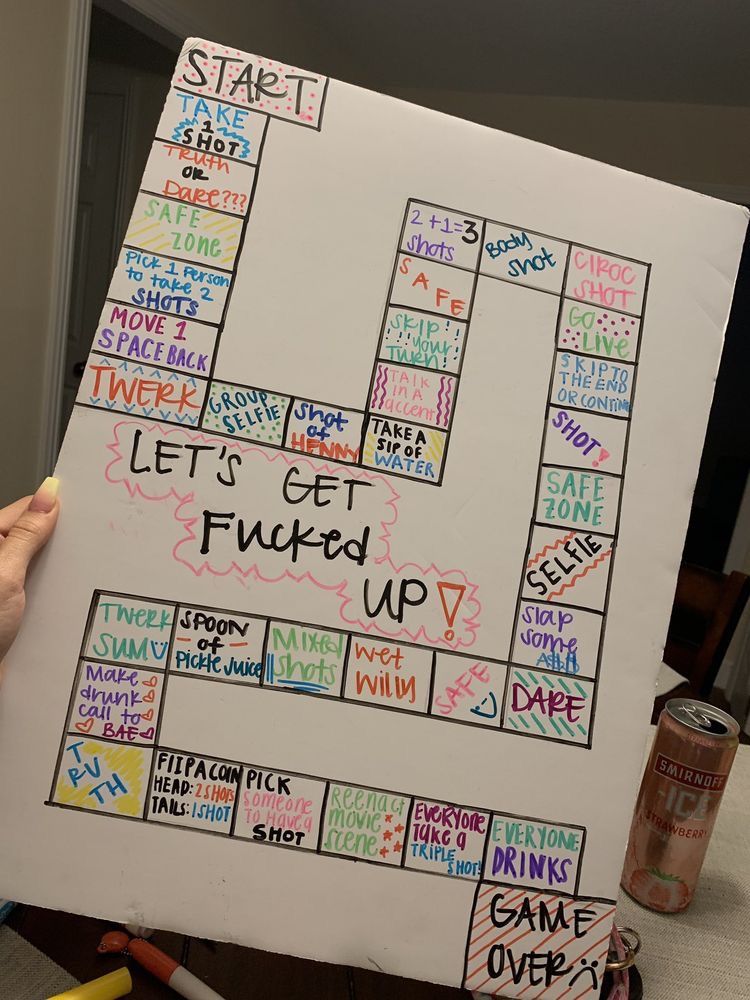 START
TAKE
1
SHOT
TRUTH
OR
DARE???
SAFE
ZONE
PICK 1 PERSON
to take 2
SHOTS
MOVE 1
SPACE BACK
TWERK
GROUP
SELFIE
Shot
of
HENNY
TAKE A
SIP OF
WATER
TALK
IN A
accent
SKIP your
TURN!
SAFE
2+1=3
shots
BODY
shot
CIROC
SHOT
GO
LIVE
SKIP TO
THE END
OR CONTINUE
SHOT!
SAFE
ZONE
SELFIE
Slap
some
A$$
DARE
SAFE
wet
willy
MIXED
Shots
SPOON
of
Pickle Juice
TWERK
SUM
Make
drunk
call to
BAE
TRUTH
FLIP A COIN
HEAD: 2 SHOTS
TAILS: 1 SHOT
PICK
someone
TO HAVE A
SHOT
Reenact
movie
scene
EVERYONE
TAKE A
TRIPLE
SHOT!
EVERYONE
DRINKS
GAME
OVER
LET'S GET
FUCKED
UP!
SMIRNOFF
ICE
STRAWBERRY